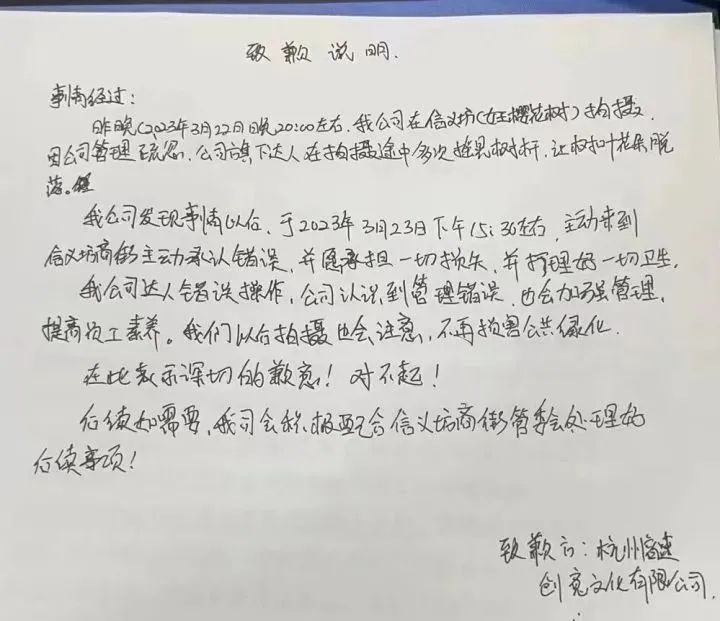 致歉说明.
事情经过:
昨晚(2023年3月22日晚20:00左右,我公司在信义坊(女王樱花树)拍摄.
因公司管理疏忽,公司旗下达人在拍摄途中多次摇晃树杆,让树叶花朵脱
落。
我公司发现事情以后,于2023年3月23日下午15:30左右,主动来到
信义坊商街主动承认错误,并愿承担一切损失,并打理好一切卫生.
我公司达人错误操作,公司认识到管理错误,也会加强管理,
提高员工素养。我们以后拍摄也会注意,不再损害公共绿化.
在此表示深切的歉意!对不起!
后续如需要,我司会积极配合信义坊商街管委会处理好
后续事项!
致歉方:杭州
创意文化有限公司.